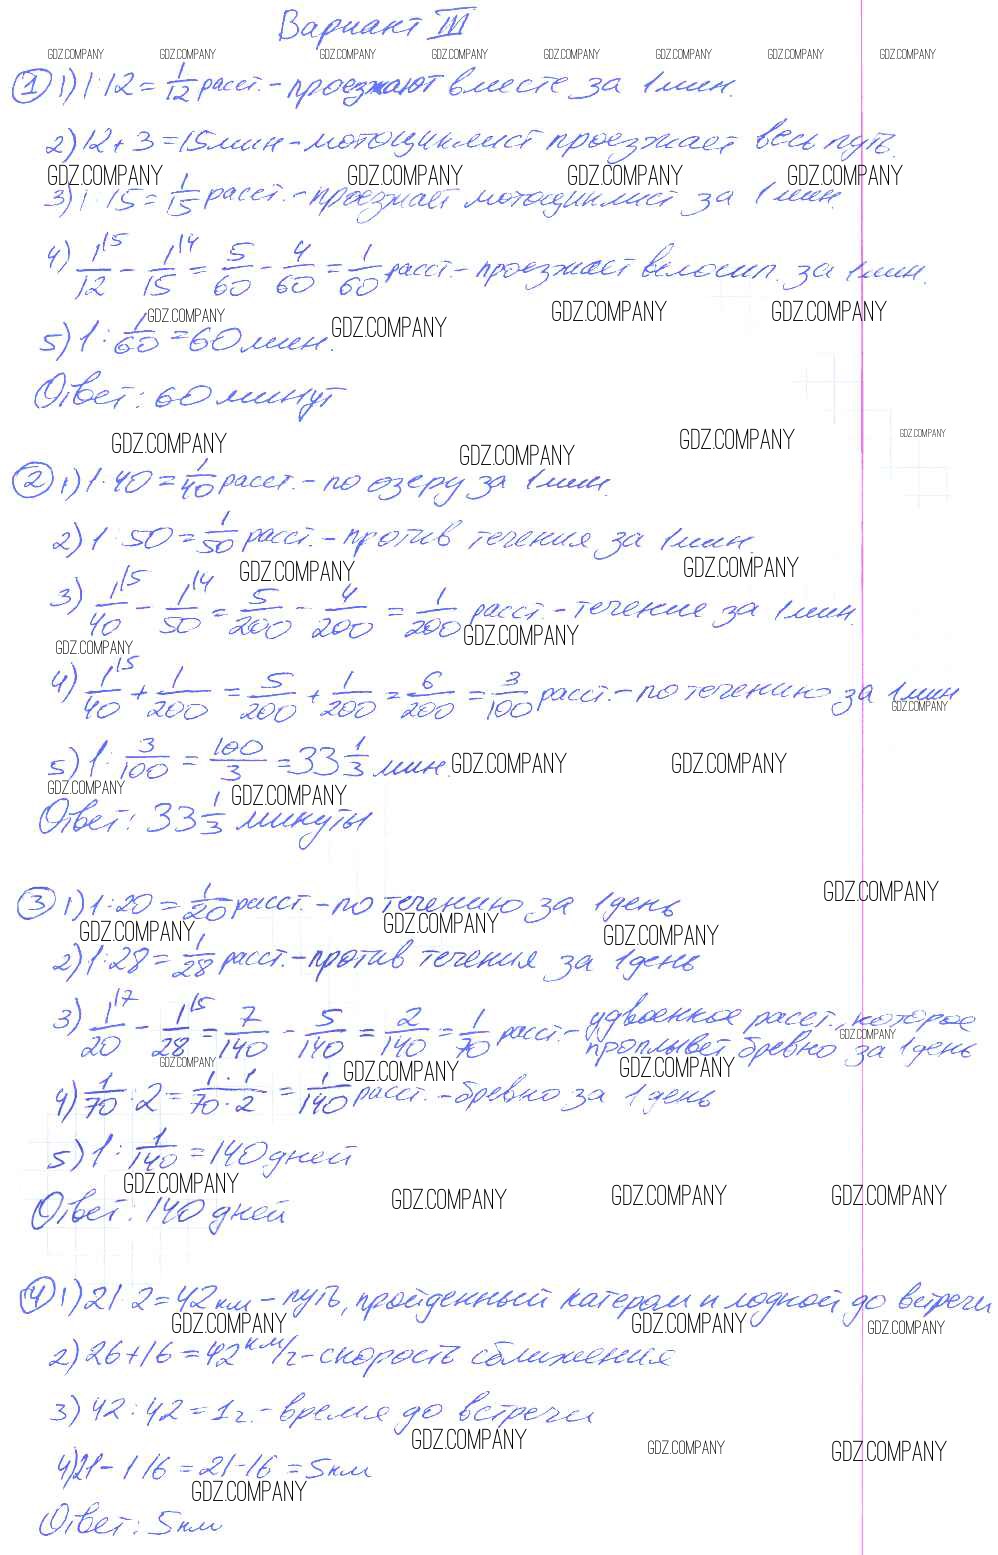 Вариант III
GDZ.COMPANY GDZ.COMPANY GDZ.COMPANY GDZ.COMPANY GDZ.COMPANY GDZ.COMPANY GDZ.COMPANY GDZ.COMPANY
① 1) 1:12 = 1/12 расст. – проезжают вместе за 1 мин.
2) 12 + 3 = 15 мин – мотоциклист проезжает весь путь.
GDZ.COMPANY GDZ.COMPANY GDZ.COMPANY GDZ.COMPANY
3) 1:15 = 1/15 расст. – проезжает мотоциклист за 1 мин.
4) 1\5/12 – 1\4/15 = 5/60 – 4/60 = 1/60 расст. – проезжает велосип. за 1 мин.
GDZ.COMPANY GDZ.COMPANY GDZ.COMPANY GDZ.COMPANY
5) 1 : 1/60 = 60 мин.
Ответ: 60 минут
GDZ.COMPANY GDZ.COMPANY GDZ.COMPANY GDZ.COMPANY
② 1) 1:40 = 1/40 расст. – по озеру за 1 мин.
2) 1:50 = 1/50 расст. – против течения за 1 мин.
GDZ.COMPANY GDZ.COMPANY
3) 1\5/40 – 1\4/50 = 5/200 – 4/200 = 1/200 расст. – течение за 1 мин.
GDZ.COMPANY GDZ.COMPANY
4) 1\5/40 + 1/200 = 5/200 + 1/200 = 6/200 = 3/100 расст. – по течению за 1 мин
GDZ.COMPANY
5) 1 : 3/100 = 100/3 = 33 1/3 мин.
GDZ.COMPANY GDZ.COMPANY
GDZ.COMPANY GDZ.COMPANY
Ответ: 33 1/3 минуты
GDZ.COMPANY
③ 1) 1:20 = 1/20 расст. – по течению за 1 день
GDZ.COMPANY GDZ.COMPANY GDZ.COMPANY
2) 1:28 = 1/28 расст. – против течения за 1 день
3) 1\7/20 – 1\5/28 = 7/140 – 5/140 = 2/140 = 1/70 расст. – удвоенное расст., которое
проплывет бревно за 1 день
GDZ.COMPANY GDZ.COMPANY GDZ.COMPANY GDZ.COMPANY
4) 1/70 : 2 = 1·1/70·2 = 1/140 расст. – бревно за 1 день
5) 1 : 1/140 = 140 дней
GDZ.COMPANY GDZ.COMPANY GDZ.COMPANY GDZ.COMPANY
Ответ: 140 дней
④ 1) 21·2 = 42 км – путь, пройденный катером и лодкой до встречи
GDZ.COMPANY GDZ.COMPANY GDZ.COMPANY
2) 26 + 16 = 42 км/ч – скорость сближения
3) 42 : 42 = 1 ч. – время до встречи
GDZ.COMPANY GDZ.COMPANY GDZ.COMPANY
4) 21 – 1·16 = 21 – 16 = 5 км
GDZ.COMPANY
Ответ: 5 км